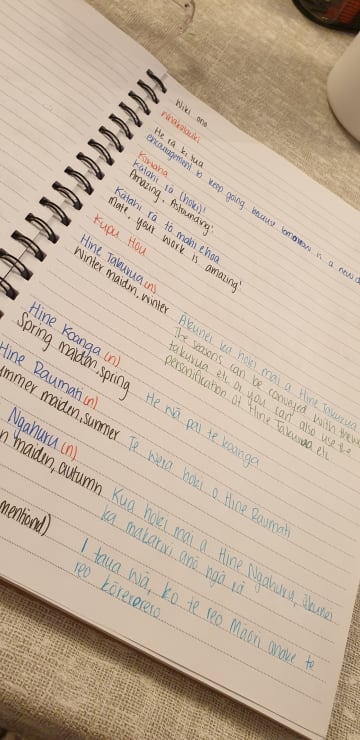 Wiki ono
Whakatauki
He rā ki tua
encouragement to keep going, because tomorrow is a new
Kīwaha
Kātahi rā (hoki)!
Amazing, Astounding!
Kātahi rā tō mahi ehoa
mate, your work is amazing!
Kupu Hou
Hine Takurua (n)
Winter maiden, winter
Ākunei ka hoki mai a Hine Takurua
The seasons can be conveyed with
takurua etc or you can also use the
personification of Hine Takurua etc
Hine Kōanga (n)
Spring maiden, spring
He wā pai te kōanga
Hine Raumati (n)
summer maiden, summer
Te wera hoki o Hine Raumati
Ngahuru (n)
maiden, autumn
Kua hoki mai a Hine Ngahuru, ākunei
ka makariri anō ngā rā
mentiond)
I taua wā, ko te reo Māori anake te
reo kōrerorero